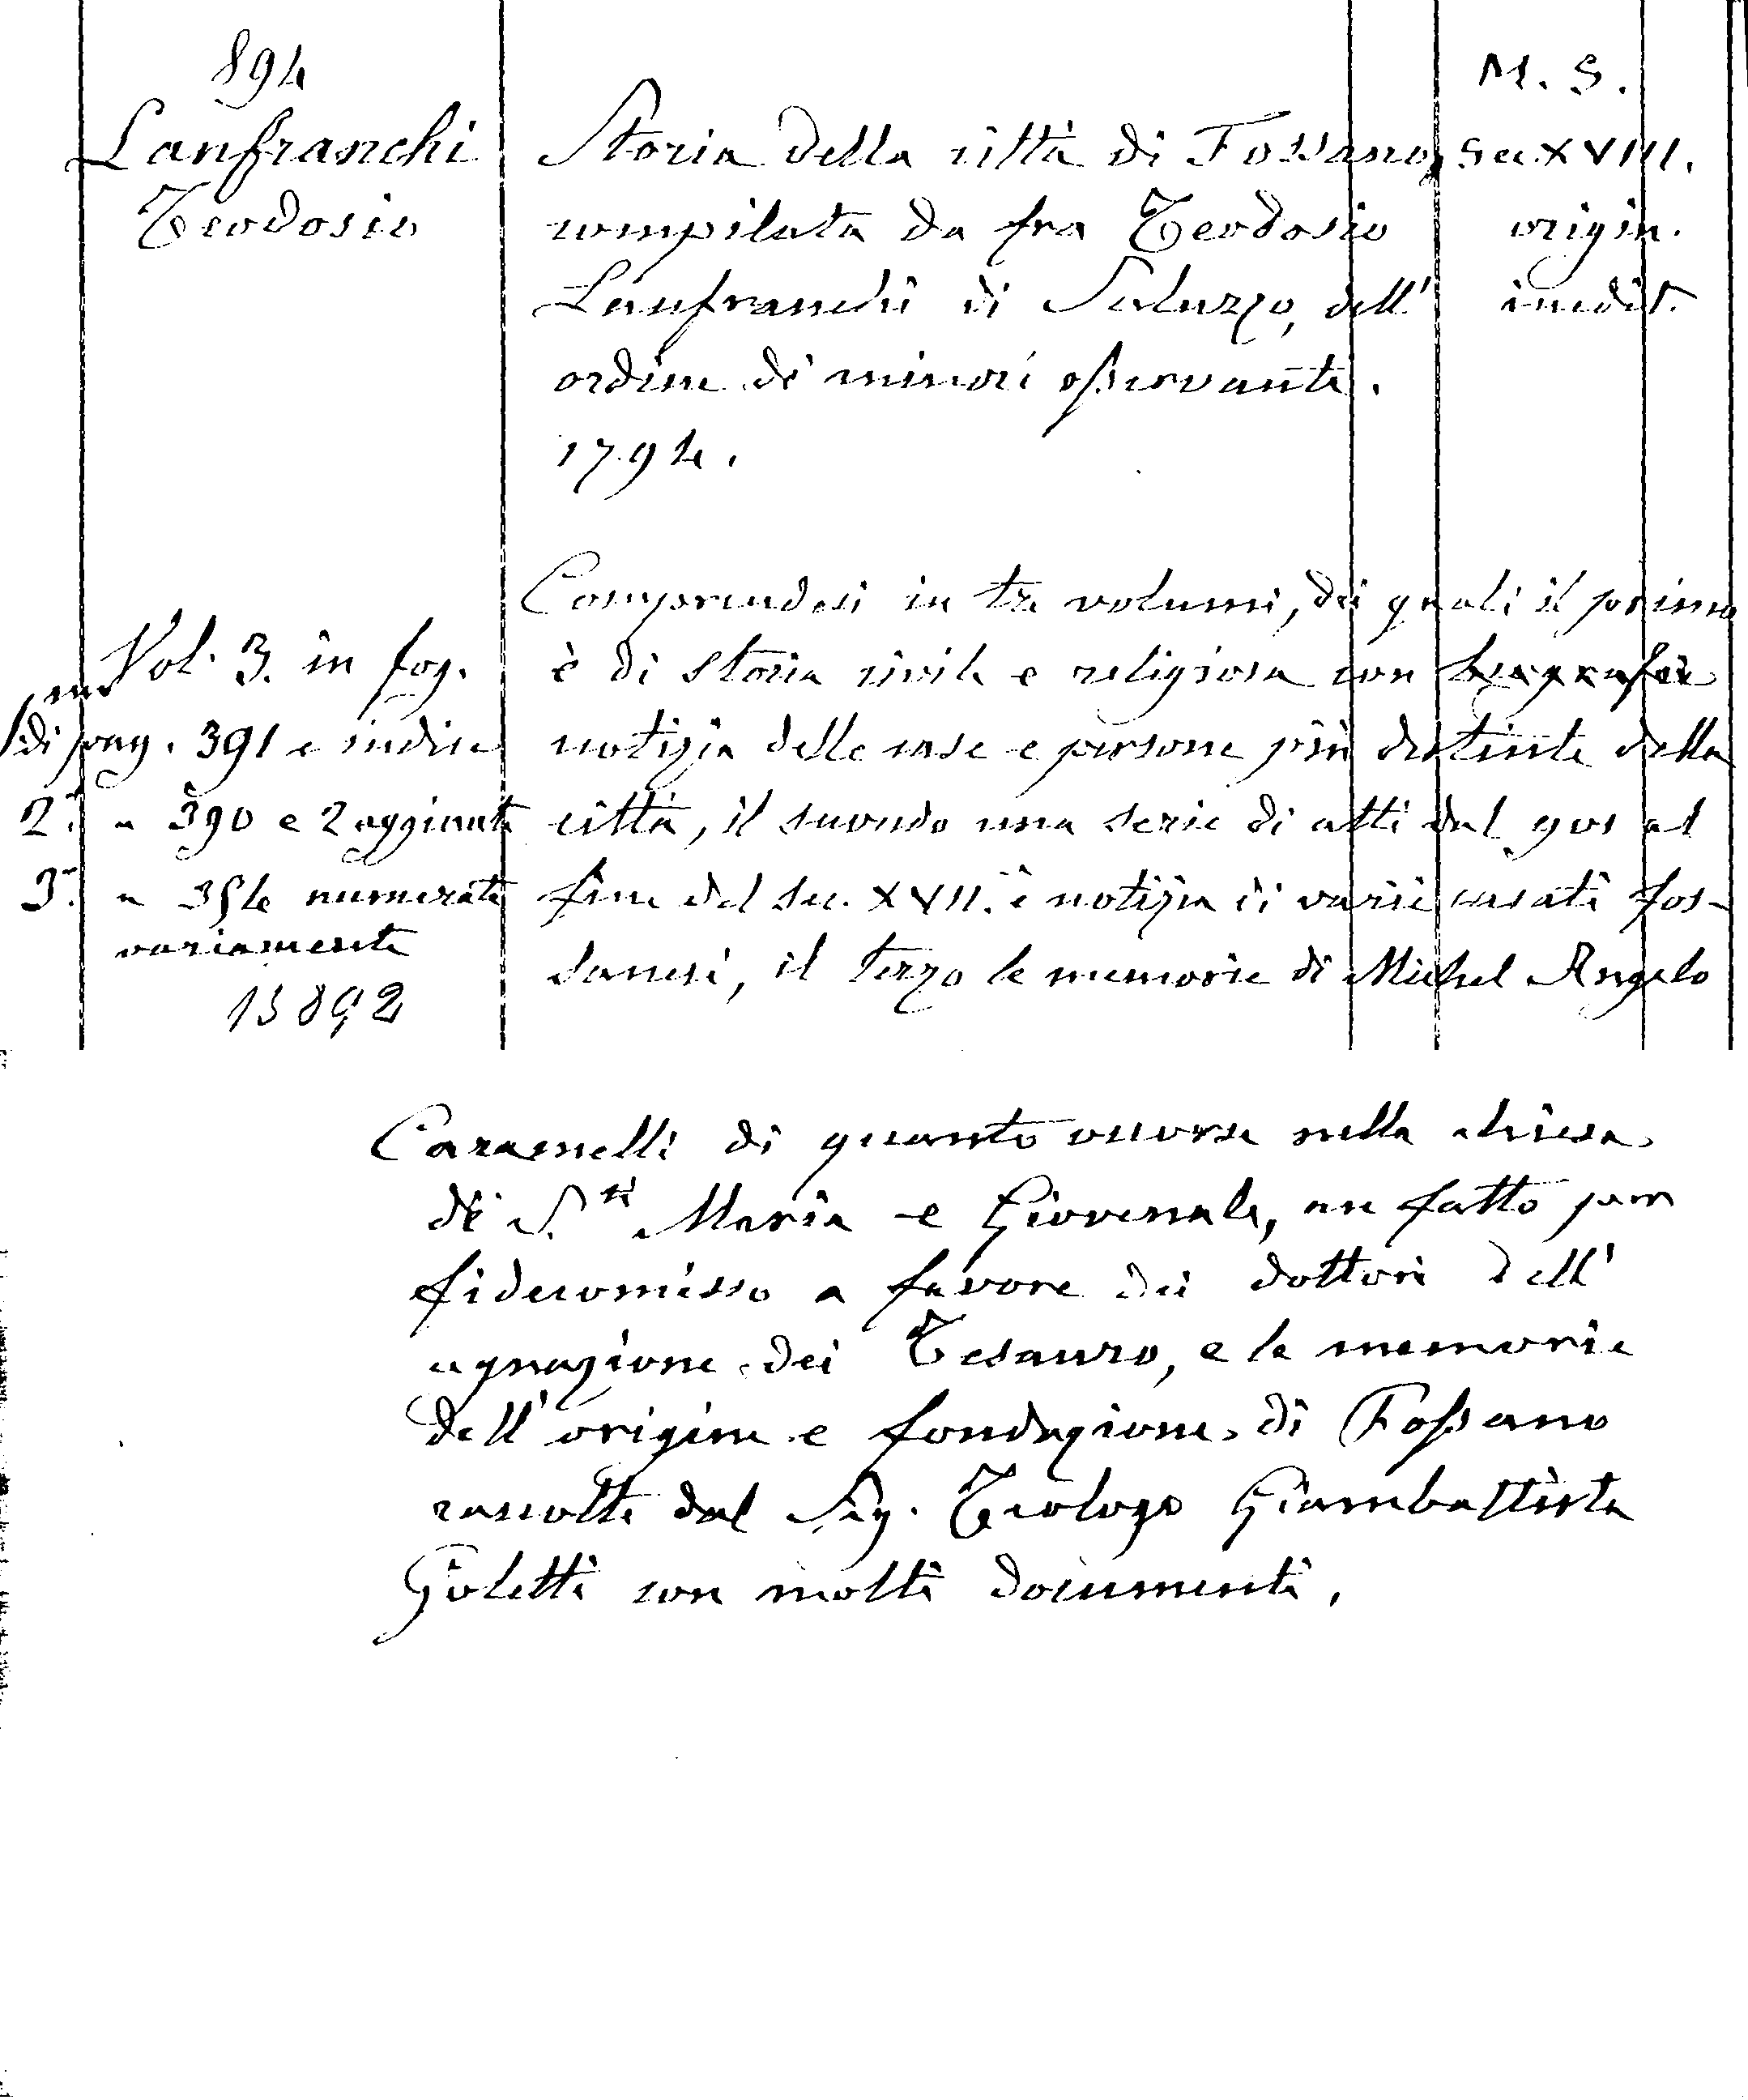 894
Lanfranchi
Teodosio
Storia della città di Fossano,
compilata da fra Teodosio
Lanfranchi di Saluzzo, dell'
ordine di minori osservanti.
1794.
M. S.
Sec. XVIII.
origin.
inedit.
Vol. 3. in fog.
di pag. 391 e indice
2.° " 390 e 2 aggiunte
3.° " 354 numerate
variamente
13892
Comprendesi in tre volumi, dei quali il primo
è di storia civile e religiosa con
notizia delle case e persone più distinte della
città, il secondo una serie di atti dal 901 al
fine del sec. XVII. e notizia di varii casati fos-
sanesi, il terzo le memorie di Michel Angelo
Caramelli di quanto occorse nella chiesa
di S.ti Maria e Giovenale, un fatto per
fidecomisso a favore dei dottori dell'
agnazione dei Tesauro, e le memorie
dell'origine e fondazione di Fossano
raccolte dal Sig. Teologo Giambattista
Goletti con molti documenti.